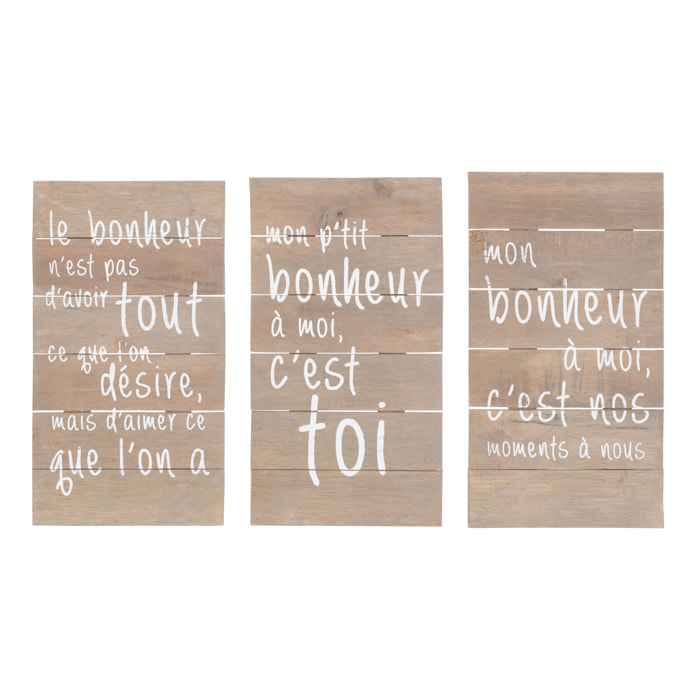 le bonheur
n'est pas
d'avoir tout
ce que l'on
désire,
mais d'aimer ce
que l'on a
mon p'tit
bonheur
à moi,
c'est
toi
mon
bonheur
à moi,
c'est nos
moments à nous